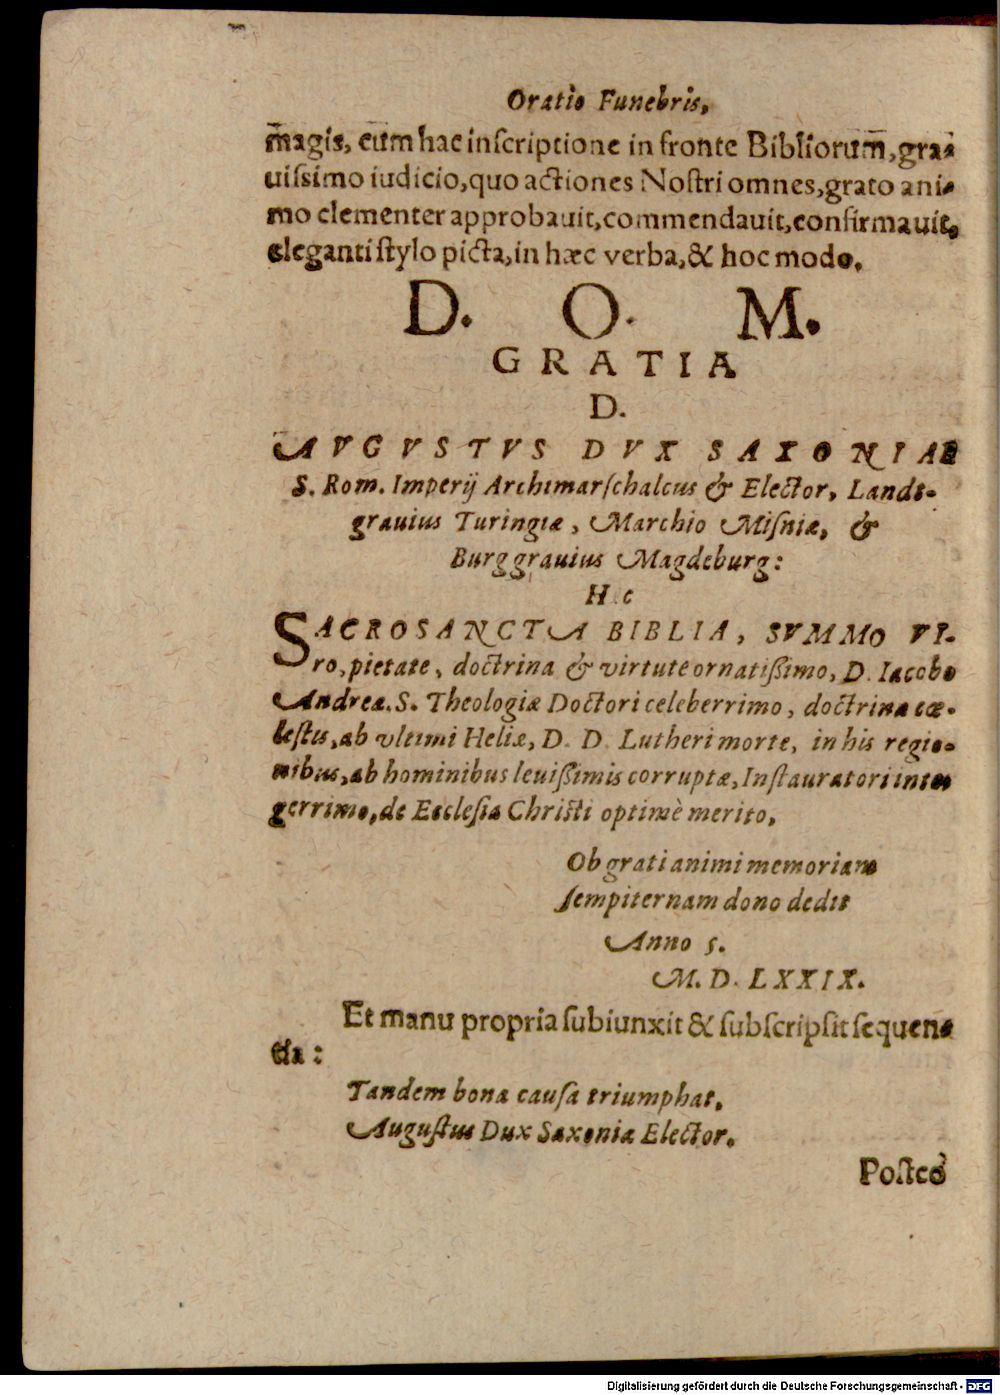 Oratio Funebris,
m̄agis, cum hac inſcriptione in fronte Bibliorum̄, gra-
uiſsimo iudicio, quo actiones Noſtri omnes, grato ani-
mo clementer approbauit, commendauit, confirmauit,
eleganti ſtylo picta, in hæc verba, & hoc modo.
D. O. M.
GRATIA
D.
AVGVSTVS DVX SAXONIAE
S. Rom. Imperij Archimarſchalcus & Elector, Landt-
grauius Turingiæ, Marchio Miſniæ, &
Burggrauius Magdeburg:
Hc
SACROSANCTA BIBLIA, SVMMO VI-
ro, pietate, doctrina & virtute ornatiſſimo, D. Iacobo
Andreæ. S. Theologiæ Doctori celeberrimo, doctrinæ cœ-
leſtis, ab vltimi Heliæ, D. D. Lutheri morte, in his regio-
nibus, ab hominibus leuiſſimis corruptæ, Inſtauratori inte-
gerrimo, de Eccleſia Chriſti optimè merito,
Ob grati animi memoriam
ſempiternam dono dedit
Anno ς.
M. D. LXXIX.
Et manu propria ſubiunxit & ſubſcripſit ſequen-
tia:
Tandem bona cauſa triumphat.
Auguſtus Dux Saxoniæ Elector.
Poſteò
Digitalisierung gefördert durch die Deutsche Forschungsgemeinschaft - DFG